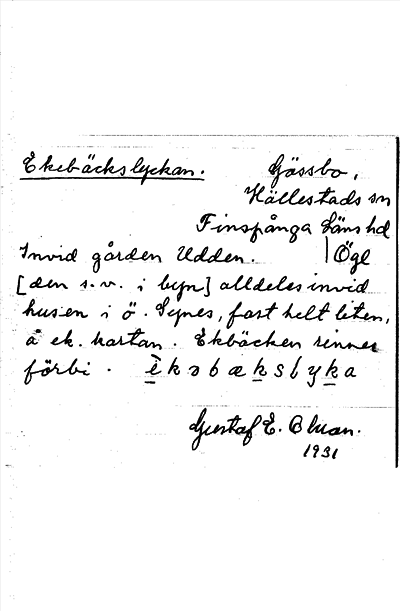 Ekebäckslyckan. Gössbo,
Hällestads sn
Finspånga läns hd
Invid gården Udden. | Ögl
[den s.v. i byn] alldeles invid
husen i ö. Synes, fast helt liten,
å ek. kartan. Ekbäcken rinner
förbi. èkəbæksḷyka
Gustaf E. Bluan.
1931